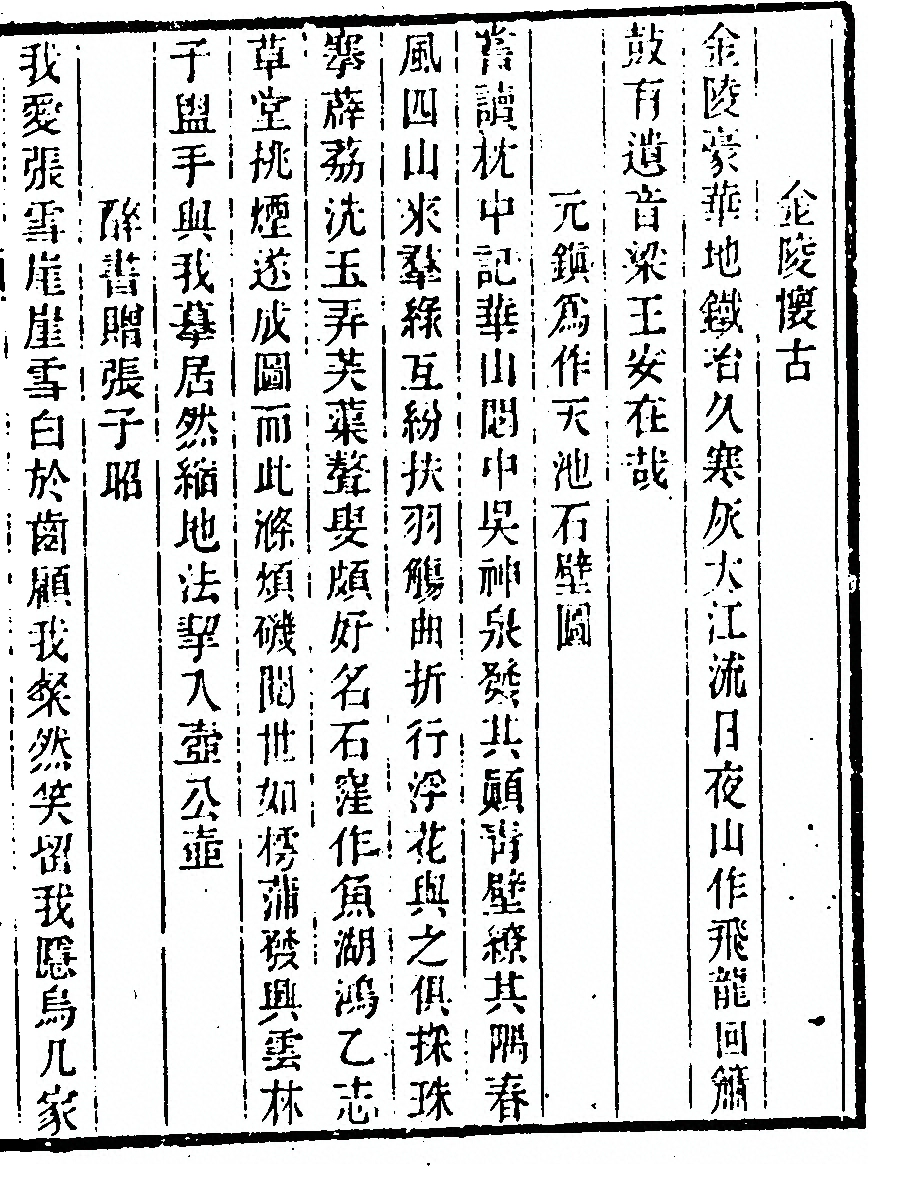 金陵懷古
金陵豪華地鐵冶久寒灰大江流日夜山作飛龍回簫
鼓有遺音梁王安在哉
元鎮爲作天池石壁圖
嘗讀枕中記華山閟中吳神泉發其顛青壁繚其隅春
風四山來羣綠互紛扶羽觴曲折行浮花與之俱探珠
搴薜荔洗玉弄芙蕖聱叟頗好名石窪作魚湖鴻乙志
草堂挑煙遂成圖而此滌煩磯閱世如樗蒲發興雲林
子盥手與我摹居然縮地法挈入壺公壺
醉書贈張子昭
我愛張雪崖崖雪白於齒顧我粲然笑留我隱烏几家